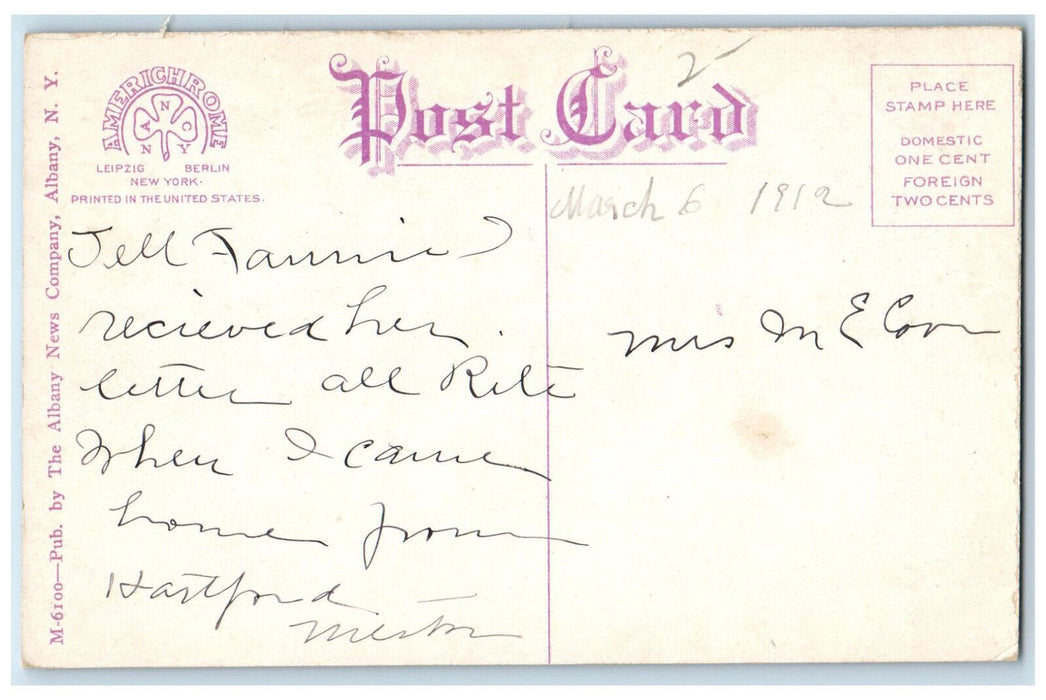 M-6100—Pub. by The Albany News Company, Albany, N. Y.
AMERICHROME
A N N C Y
LEIPZIG BERLIN
NEW YORK.
PRINTED IN THE UNITED STATES.
Post Card
2
PLACE
STAMP HERE
DOMESTIC
ONE CENT
FOREIGN
TWO CENTS
March 6 1912
Tell Fannie I
recieved her
letter all Rite
when I came
home from
Hartford
Mrs M E